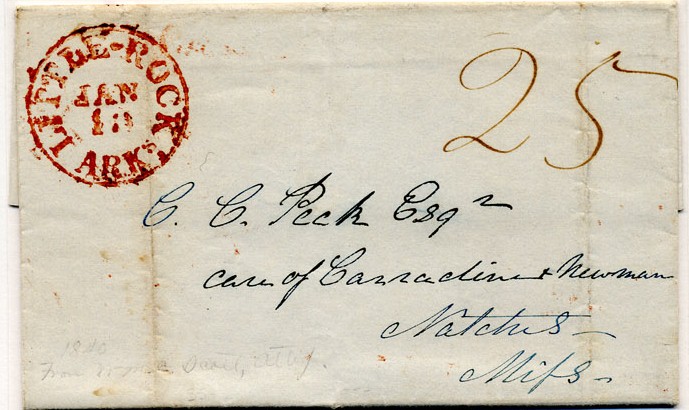 LITTLE-ROCK
JAN
13
ARKS
25
C. C. Peck Esqr
care of Carradine & Newman
Natches
Miss
1840
From